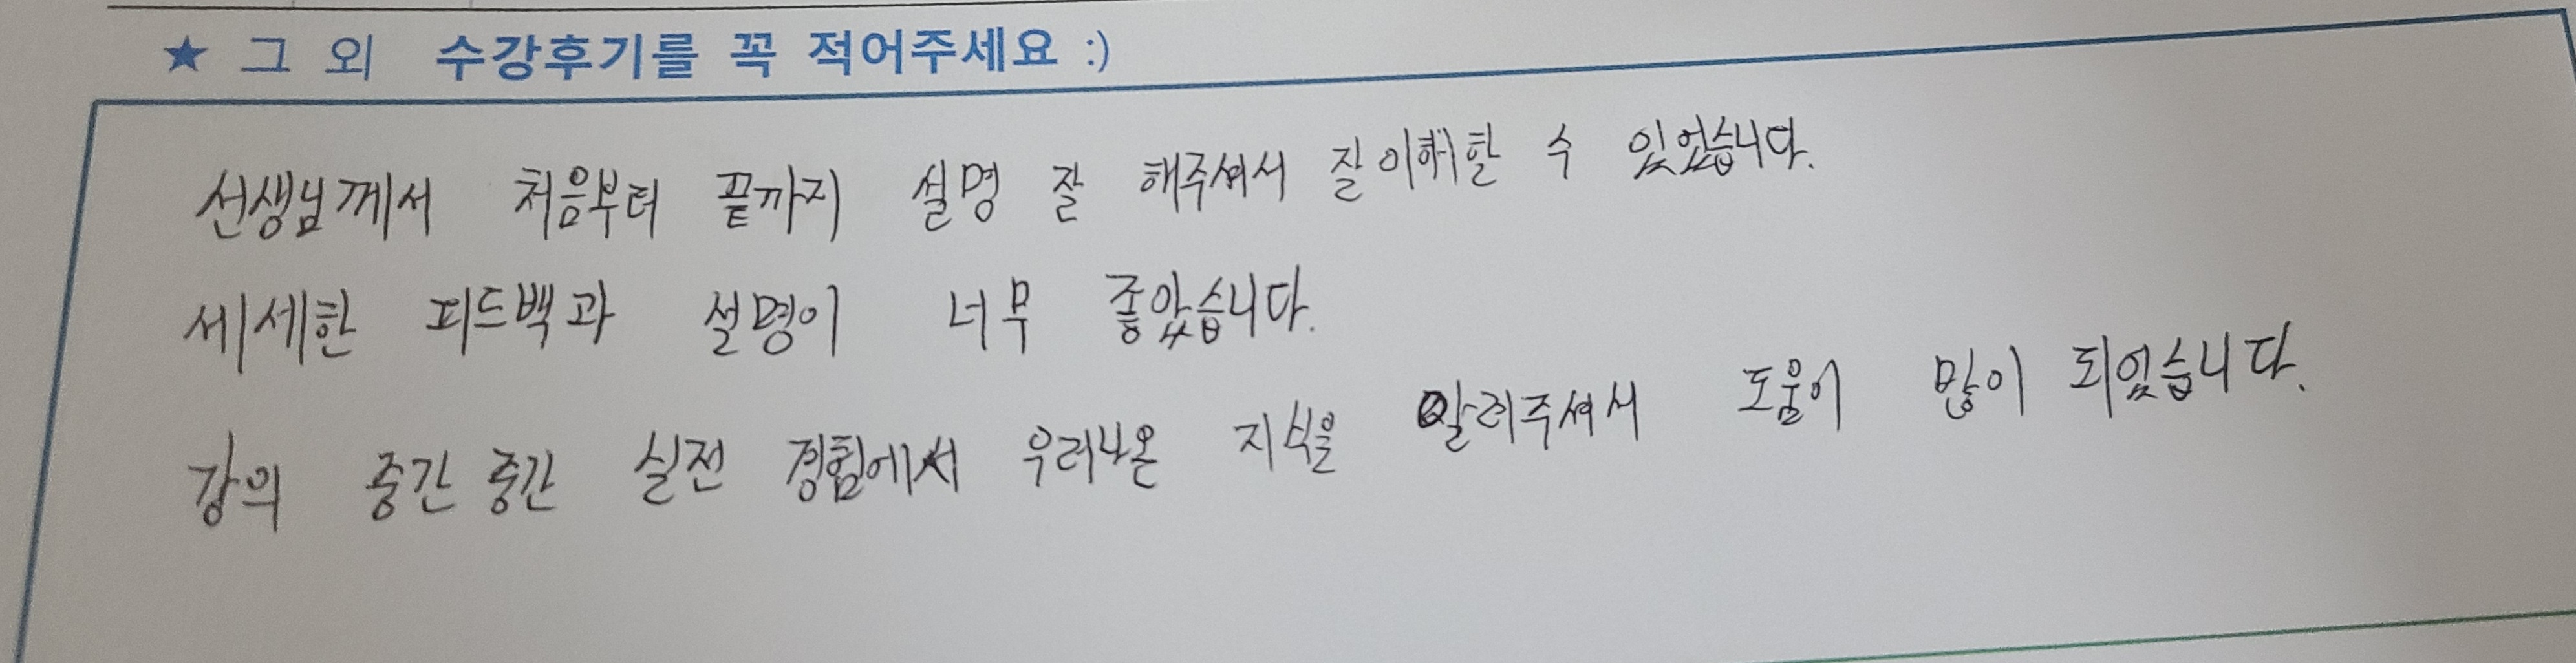 ★ 그 외 수강후기를 꼭 적어주세요 :)
선생님께서 처음부터 끝까지 설명 잘 해주셔서 잘 이해할 수 있었습니다.
세세한 피드백과 설명이 너무 좋았습니다.
강의 중간 중간 실전 경험에서 우러나온 지식을 알려주셔서 도움이 많이 되었습니다.